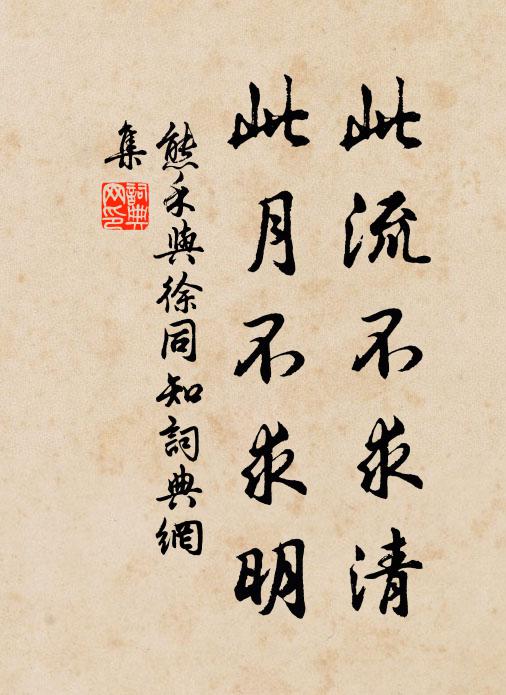 此流不求清
此月不求明
熊禾與徐同知詞典網
集
詞典
网印